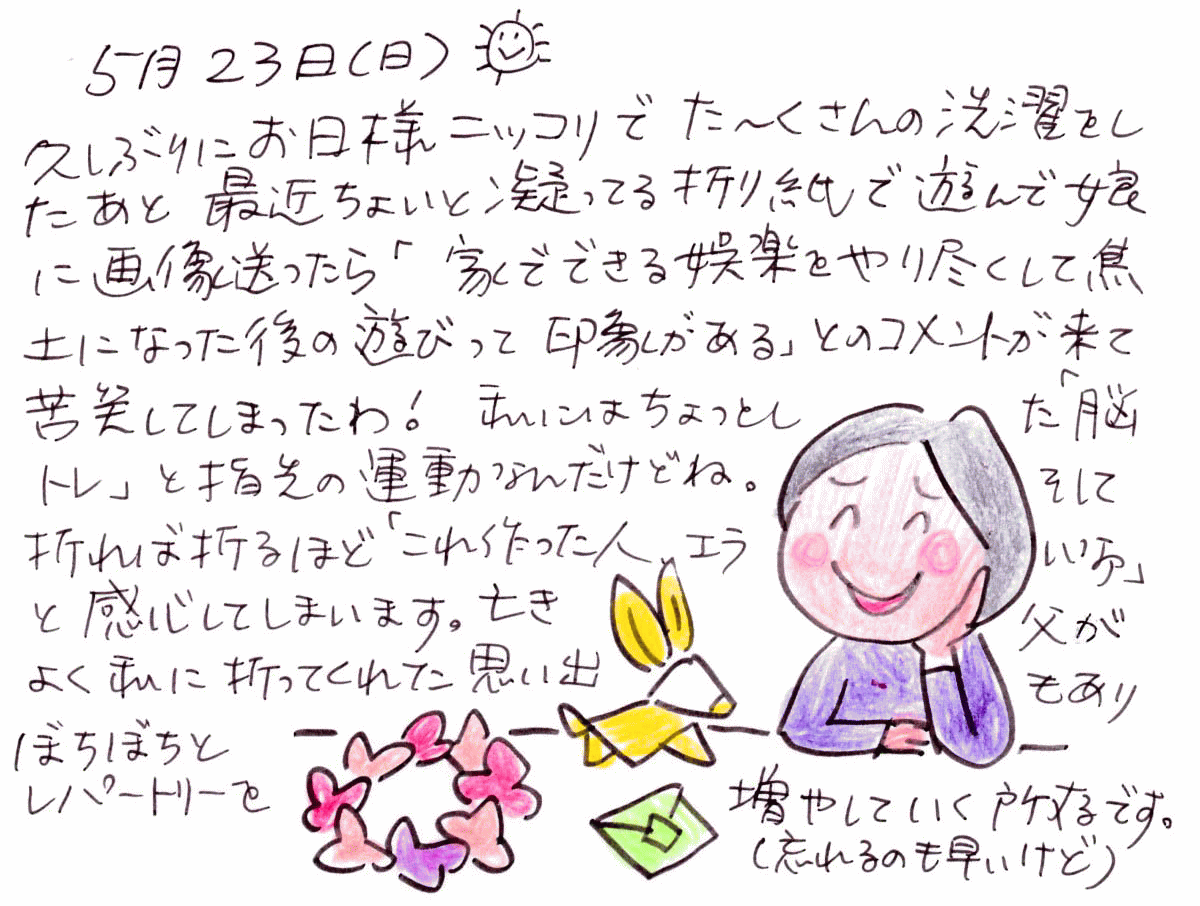 5月23日(日)
久しぶりにお日様ニッコリで た~くさんの洗濯をし
たあと 最近ちょいと凝ってる折り紙で遊んで娘
に画像送ったら「家でできる娯楽をやり尽くして焦
土になった後の遊びって印象がある」とのコメントが来て
苦笑してしまったわ! 私にはちょっとした「脳
トレ」と指先の運動かなんだけどね。そして
折れば折るほど「これ作った人、エラいわ」
と感心してしまいます。亡き父が
よく私に折ってくれてた思い出もあり
ぼちぼちと
レパートリーを増やしていく所存です。
(忘れるのも早いけど)